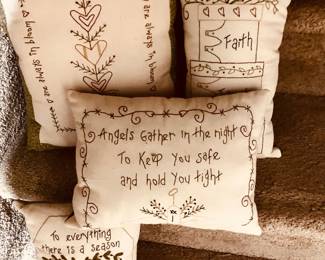 are always in bloom
Faith
Angels Gather in the night
To Keep you safe
and hold you tight
To everything
there is a season